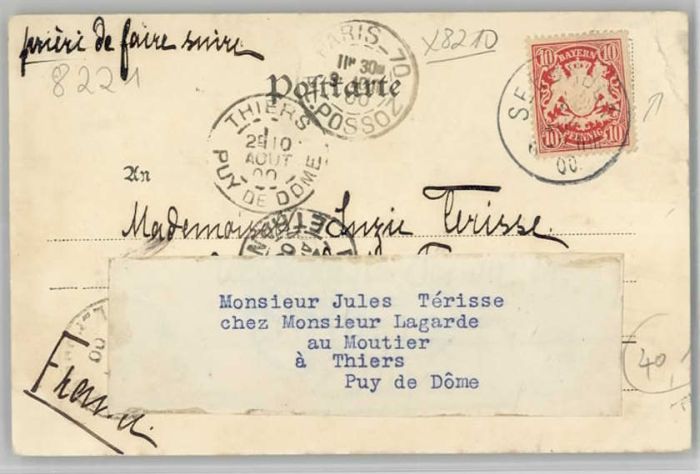 prièri de faire suire
8221
X8210
Postkarte
PARIS-70
11E 30M
00
POSSOZ
THIERS
2E 10
AOUT
00
PUY DE DÔME
BAYERN
10 10
10 PFENNIG 10
SE
00
An
Mademoiselle Suzie Terisse
Monsieur Jules Térisse
chez Monsieur Lagarde
au Moutier
à Thiers
Puy de Dôme
40,
France.